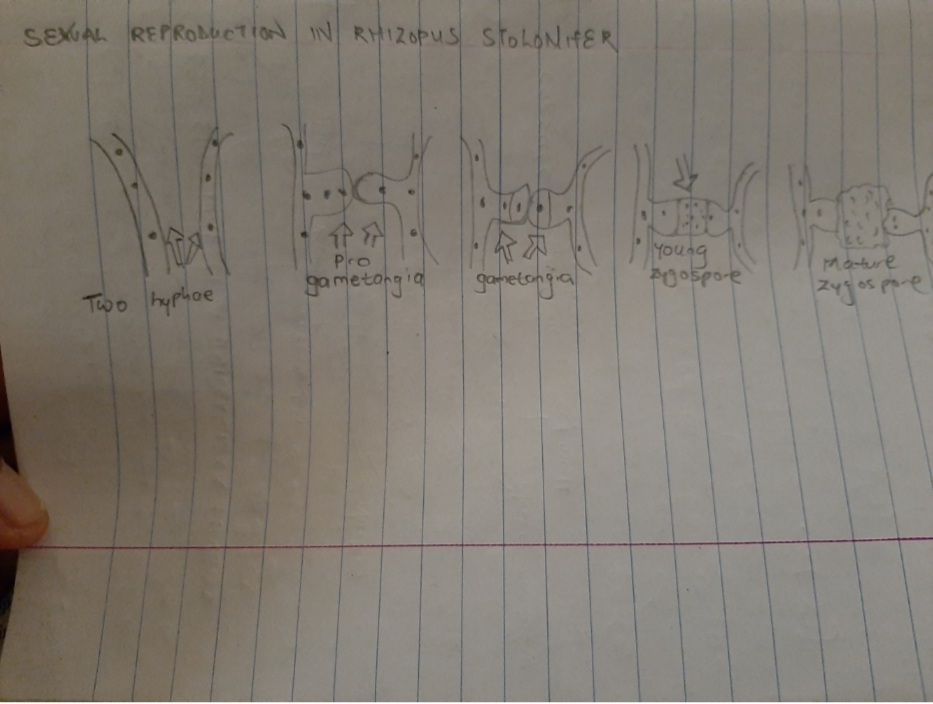 SEXUAL REPRODUCTION IN RHIZOPUS STOLONIFER
Two hyphae
Pro
gametangia
gametangia
young
zygospore
mature
zygospore